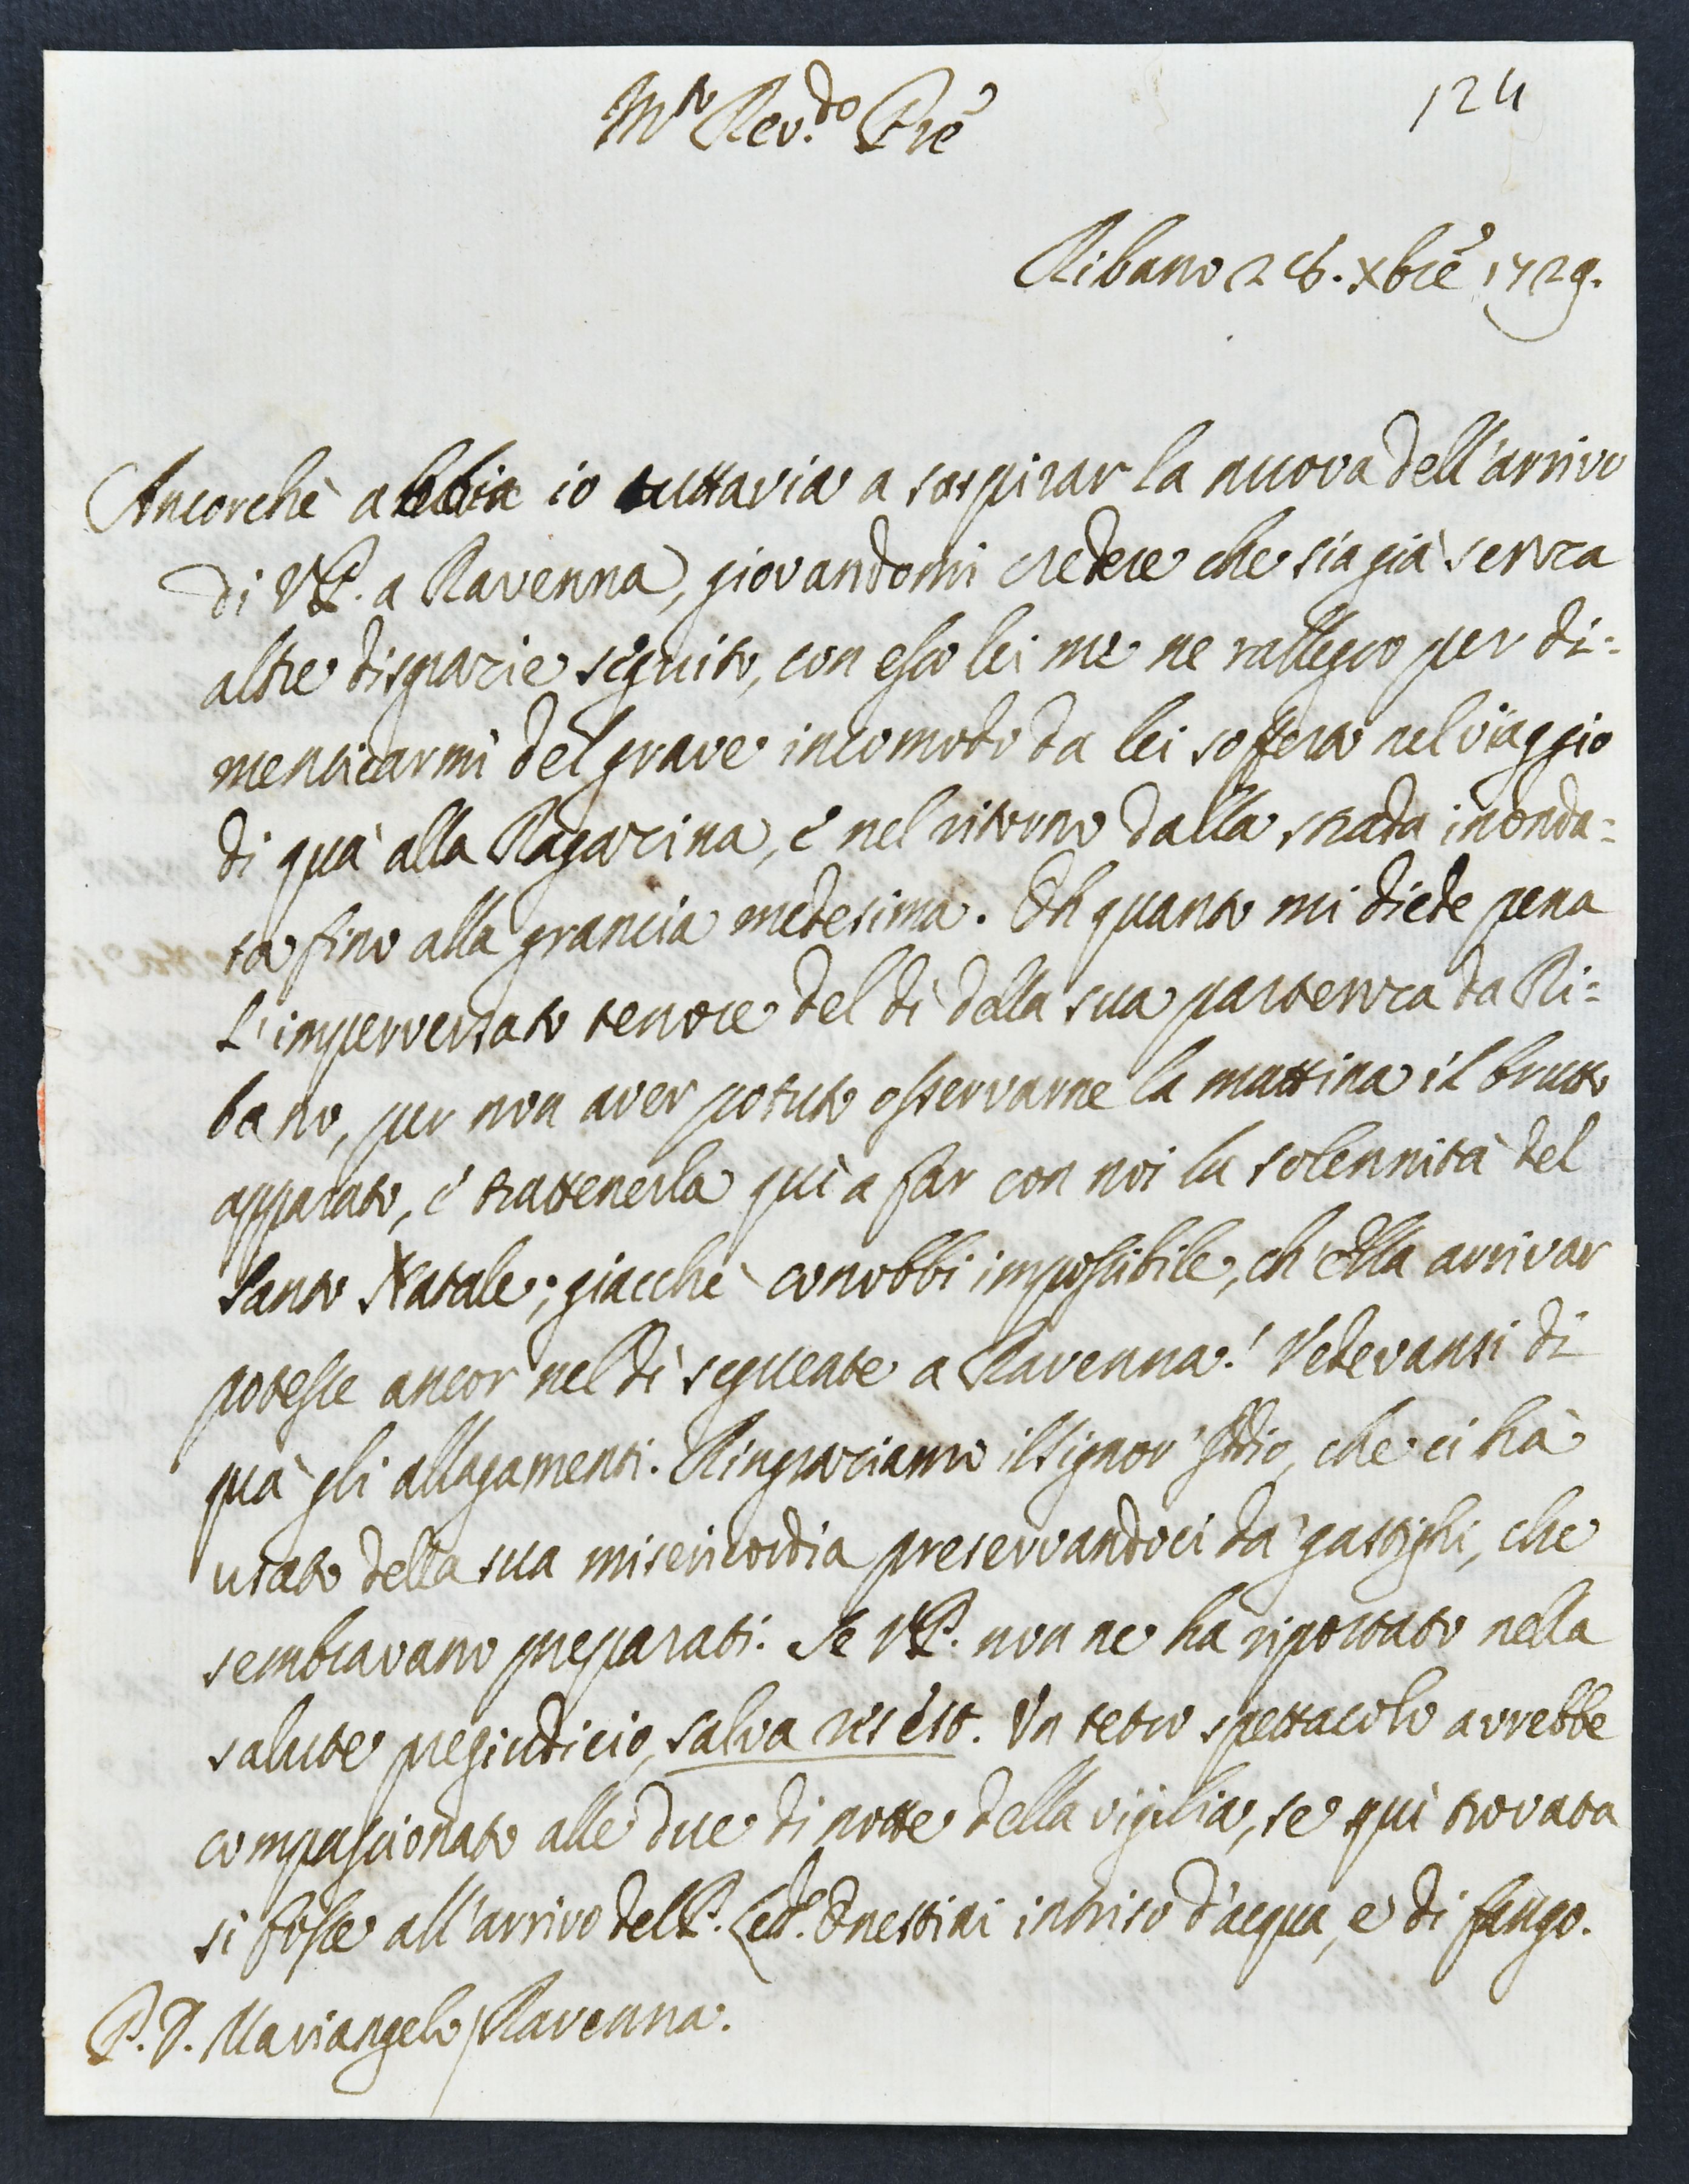 124
M.to Rev.do Pre
Ribano 26. Xbre 1729.
Ancorchè abbia io tuttavia a sospirar la nuova dell'arrivo
di V.P. a Ravenna, giovandomi credere che sia già senza
altre disgrazie seguito, con esso lei me ne rallegro per di=
menticarmi del grave incomodo da lei sofferto nel viaggio
di quà alla Ragazzina, e nel ritorno dalla strada inonda=
ta fino alla grancia medesima. Oh quanto mi diede pena
l'imperversato tenore del dì della sua partenza da Ri=
bano, per non aver potuto osservarne la mattina il brutto
apparato, e trattenerla quì a far con noi la solennità del
Santo Natale; giacchè conobbi impossibile, ch'Ella arrivar
potesse ancor nel dì seguente a Ravenna! Vedevansi di
quà gli allagamenti. Ringraziamo il Signor Iddio, che ci hà
usato della sua misericordia preservandoci da' gastighi, che
sembravano preparati. Se V.P. non ne ha riportato nella
salute pregiudicio, salva res est. Un tetro spettacolo avrebbe
compassionato alle due di notte della vigilia, se quì trovata
si fosse all'arrivo del P. intriso d'acqua, e di fango.
P. D. Mariangelo / Ravenna.